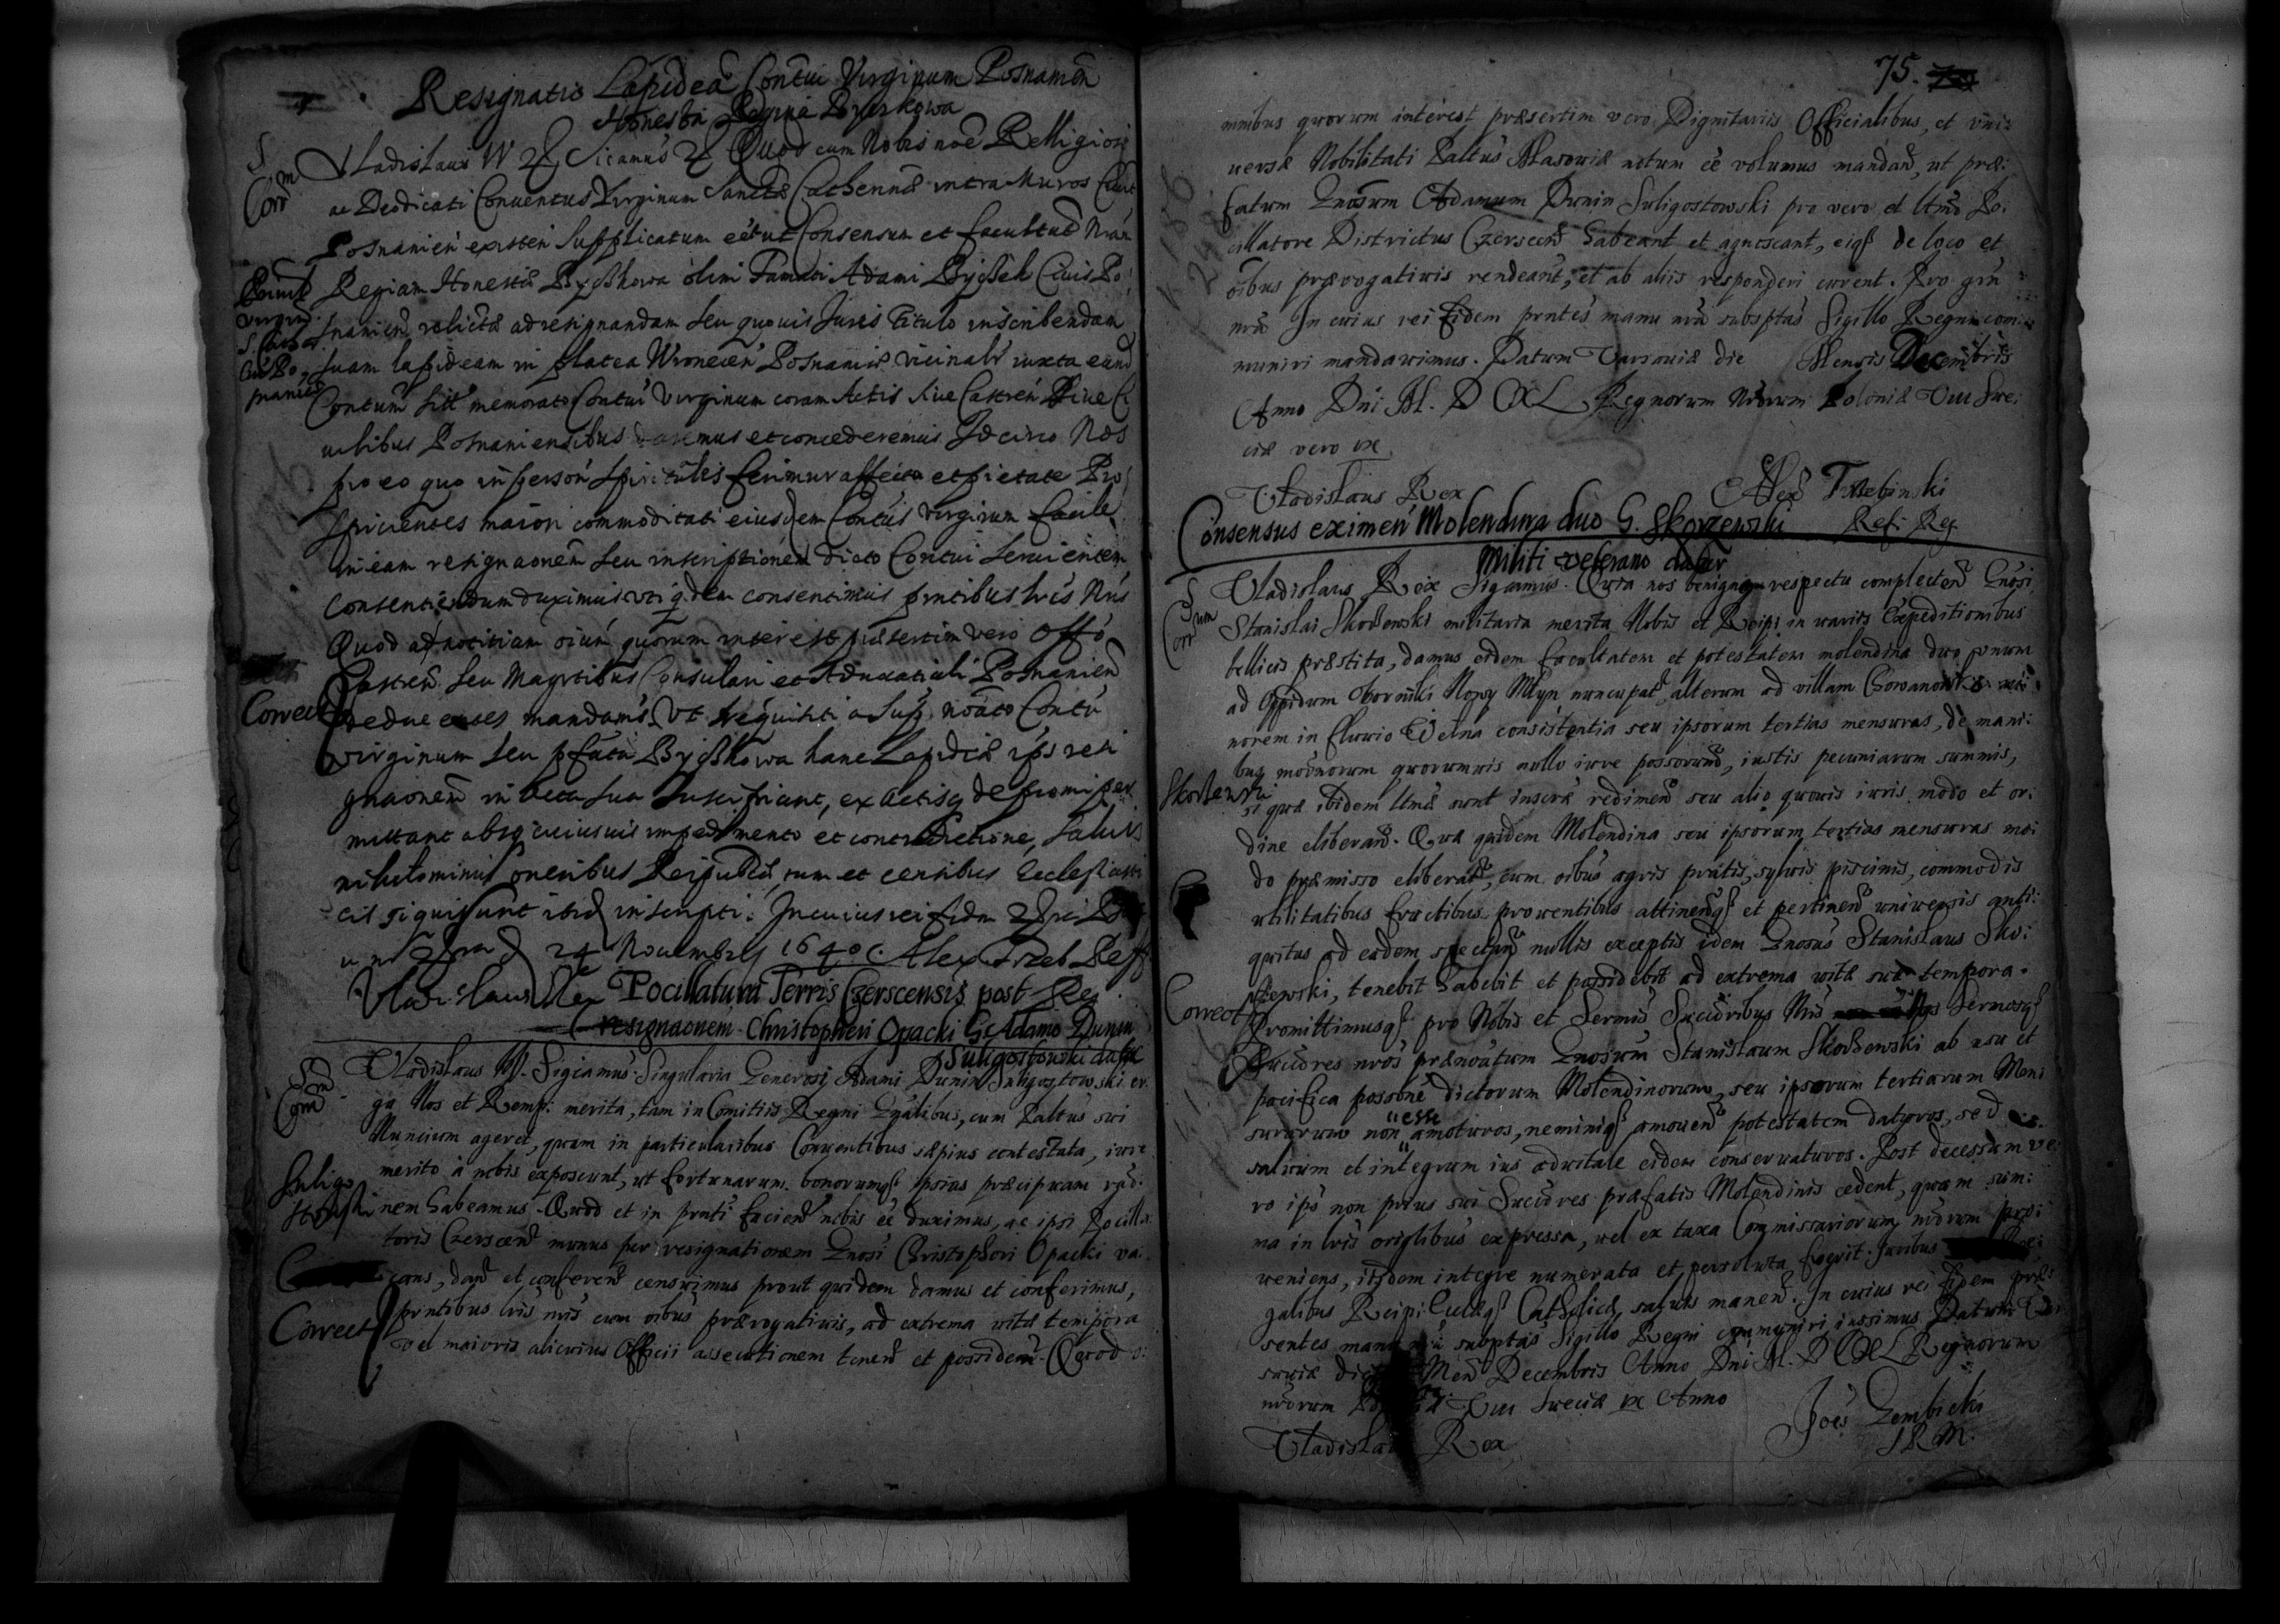 Resignatio Lapideae Contui Virginum Posnanien
Honesta Regina Byczkowa
Vladislaus IV Sicamus Quod cum Nobis noe Relligiosi
ac Deodicati Conuentus Virginum Sanctae Catherinae intra Muros
Posnanien existen supplicatum eet ut Consensum et facultate Nram
Regiam Honestae Byczkowa olim Famati Adami Byczek Ciuis Po:
snanien relictae ad resignandam seu quouis Juris titulo inscribendam
suam lapideam in platea Wronecen Posnaniae iuxta eund
Contum memorato Contui Virginum coram Actis siue Castren siue
uilibus Posnaniensibus daremus et concederemus Idcirco Nos
pro eo quo in person spirituales ferimur affectu et pietate Pro
spicientes maiori commoditati eiusdem Contus Virginum facile
in eam resignaonem seu inscriptionem dicto Contui seruientem
Consentiendum duximus uti qdem consentimus pntibus lris Nris
Quod ad notitiam oium quorum interest praesertim vero Offo
Castren seu Magrtibus Consulari et Aduocatiali Posnanien
mandamus Ut requisiti a noato Contu
virginum seu pfata Byczkowa hanc Lapideae resi
gnaonem in Acta sua suscipiant, ex Actisq depromi per
mittant absq cuiusuis impedimento et contradictione, Saluis
nihilominus oneribus Reipublicae, tum et censibus Ecclesiasti
cis si qui sunt ibid inscripti. In cuius rei fidm
24 Nouembris 1640. Alex Trzeb Reff
Vladislaus Rex
Pocillatura Terris Czerscensis post
resignaonem Christopheri Opacki G. Adamo Dunin
Suligostowski datur
Vladislaus IV. Sigcamus. Singularia Generosi Adami Dunin Suligostowski er:
ga Nos et Remp: merita, tam in Comitiis Regni Gnalibus, cum Paltus sui
Nuncium ageret, quam in particularibus Conuentibus saepius contestata, iure
merito a nobis exposcunt, ut fortunarum bonorumq ipsius praecipuam raō:
nem habeamus. Quod et in pnti faciend nobis ee duximus, ac ipsi Pocilla:
toris Czerscen munus per resignationem Gnosi Christophori Opacki va:
cans, dand et conferend censuimus prout quidem damus et conferimus,
pntibus lris nris cum oibus praerogatiuis, ad extrema vitae tempora
vel maioris alicuius Officii assecutionem tenend et possidend. Quod
S
Corr
Virgin
Correct
Suligo
stowski
Correct
75.
mnibus quorum interest praesertim vero Dignitariis Officialibus, et uni:
uersae Nobilitati Paltus Masouiae notum ee volumus mandand, ut prae:
fatum Gnosum Adamum Dunin Suligostowski pro vero et ltmo Po:
cillatore Districtus Czerscen habeant et agnoscant, eiq de loco et
oibus praerogatiuis rendeant, et ab aliis responderi curent. Pro grn
nra In cuius rei fidem pntes manu nra subsptas Sigillo Regni com:
muniri mandauimus. Datum Varsouiae die Mensis Decembris
Anno Dni M. D C XL Regnorum Nrorum Poloniae VIII Sue:
ciae vero IX
Vladislaus Rex
Alex Trzebinski
Ref: Reg
Consensus eximen Molendina duo G. Skorzewski
Militi veterano datur
Vladislaus Rex Sigcamus. Quia nos benigno respectu complecten Gnosi
Stanislai Skorzewski militaria merita Nobis et Reipi in variis Expeditionibus
bellicis praestita, damus eidem facultatem et potestatem molendina duo vnum
ad Oppidum Oborniki Nowy Mlyn nuncupat, alterum ad villam Gowanowko
norem in fluuio Welna consistentia seu ipsorum tertias mensuras, de mani:
bus modnorum quorumuis nullo iure possorum, iustis pecuniarum summis,
si quae ibidem ltmae sunt inscrae redimend seu alio quouis iuris modo et or:
dine eliberand. Quae quidem Molendina seu ipsorum tertias mensuras mo:
do praemisso eliberat, cum oibus agris pratis, syluis piscinis, commodis
utilitatibus fructibus prouentibus attinenq et pertinen uniuersis anti:
quitus ad eadem spectand nullis exceptis idem Gnosus Stanislaus Sko:
rzewski, tenebit habebit et possidebit ad extrema vitae suae tempora.
Promittimusq pro Nobis et Sermis Succribus Nris Nos Sermosq
Succres nros praenoatum Gnosum Stanislaum Skorzewski ab usu et
pacifica possone dictorum Molendinorum, seu ipsorum tertiarum Men:
surarum non esse amoturos, neminiq amouend potestatem daturos, sed
saluum et integrum ius aduitale eidem conseruaturos. Post decessum ve
ro ips non prius sui Succres praefatis Molendinis cedent, quam sum:
ma in lris origlibus expressa, vel ex taxa Commissariorum nrorum pro:
ueniens, iisdem integre numerata et persoluta fuerit. Juribus
galibus Reipi: Ecclaeq Catholicae saluis manen. In cuius rei fidem prae:
sentes manu nra subsptas Sigillo Regni communiri iussimus Datum Var
sauiae die Men Decembris Anno Dni M. D C XL Regnorum
nrorum VIII Sueciae IX Anno
Vladislaus Rex
Joes Gembicki
S R M.
S
Corr
Skorzewski
Correct